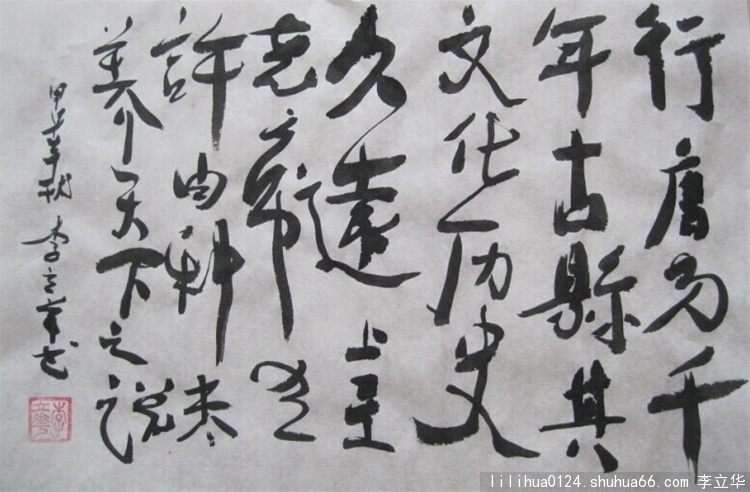 行唐为千
年古縣其
文化历史
久遠上至
尧帝
許由
天下之说
甲午年秋 李立华书
lilihua0124.shuhua66.com 李立华